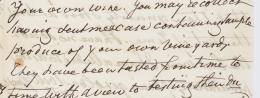 Your own wine. You may recollect
having sent me a case containing sample
produce of your own vineyards
they have been tasted from time to
time with a view to testing their